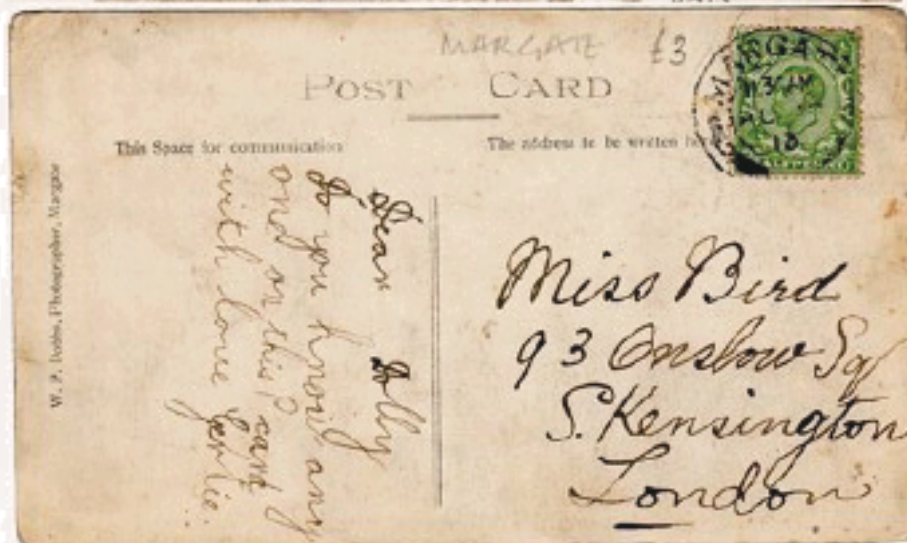 MARGATE £3
POST CARD
This Space for communication
The address to be written
W. P. Photographer, Margate
Dear
you know any
one on this card
with love
Miss Bird
93 Onslow Sq
S. Kensington
London